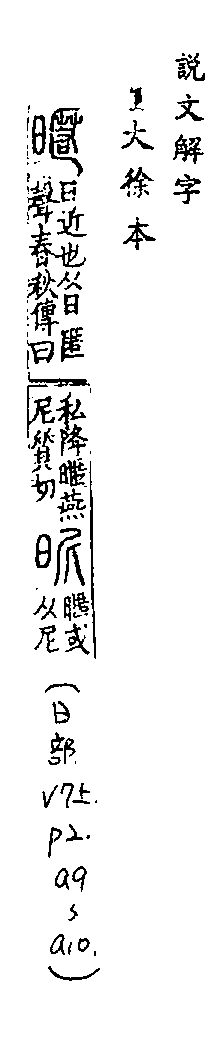 説文解字
1大徐本
暱
日近也从日匿
聲春秋傳曰
私降暱燕
尼質切
昵
暱或
从尼
(日部.v7上.p2.a9、a.10.)